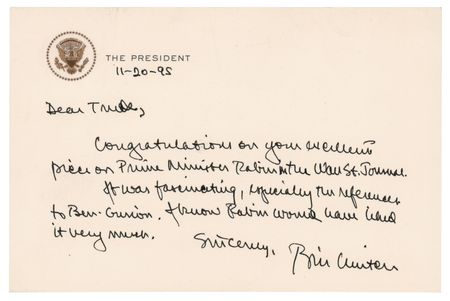 THE PRESIDENT
11-20-95
Dear Trude,
Congratulations on your excellent
piece on Prime Minister Rabin in the Wall St. Journal.
It was fascinating, especially the references
to Ben-Gurion. I know Rabin would have liked
it very much.
Sincerely,
Bill Clinton